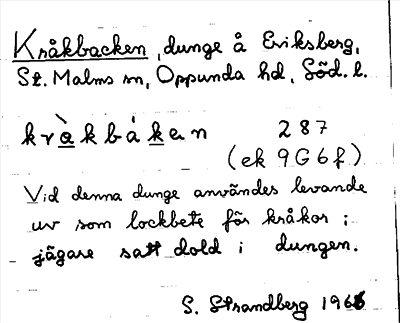 Kråkbacken, dunge å Eriksberg,
St. Malms sn, Oppunda hd, Söd. l.
kràkbáken 287
(ek 9G6f)
Vid denna dunge användes levande
uv som lockbete för kråkor;
jägare satt dold i dungen.
S. Strandberg 1966